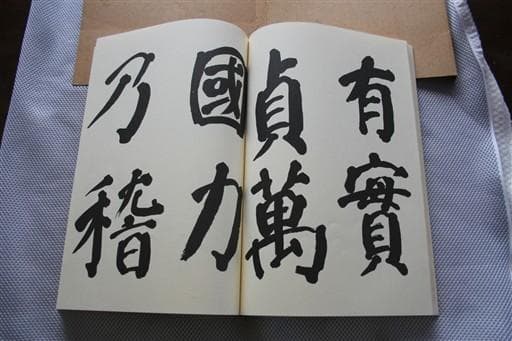 有實
貞萬
國力
乃稽